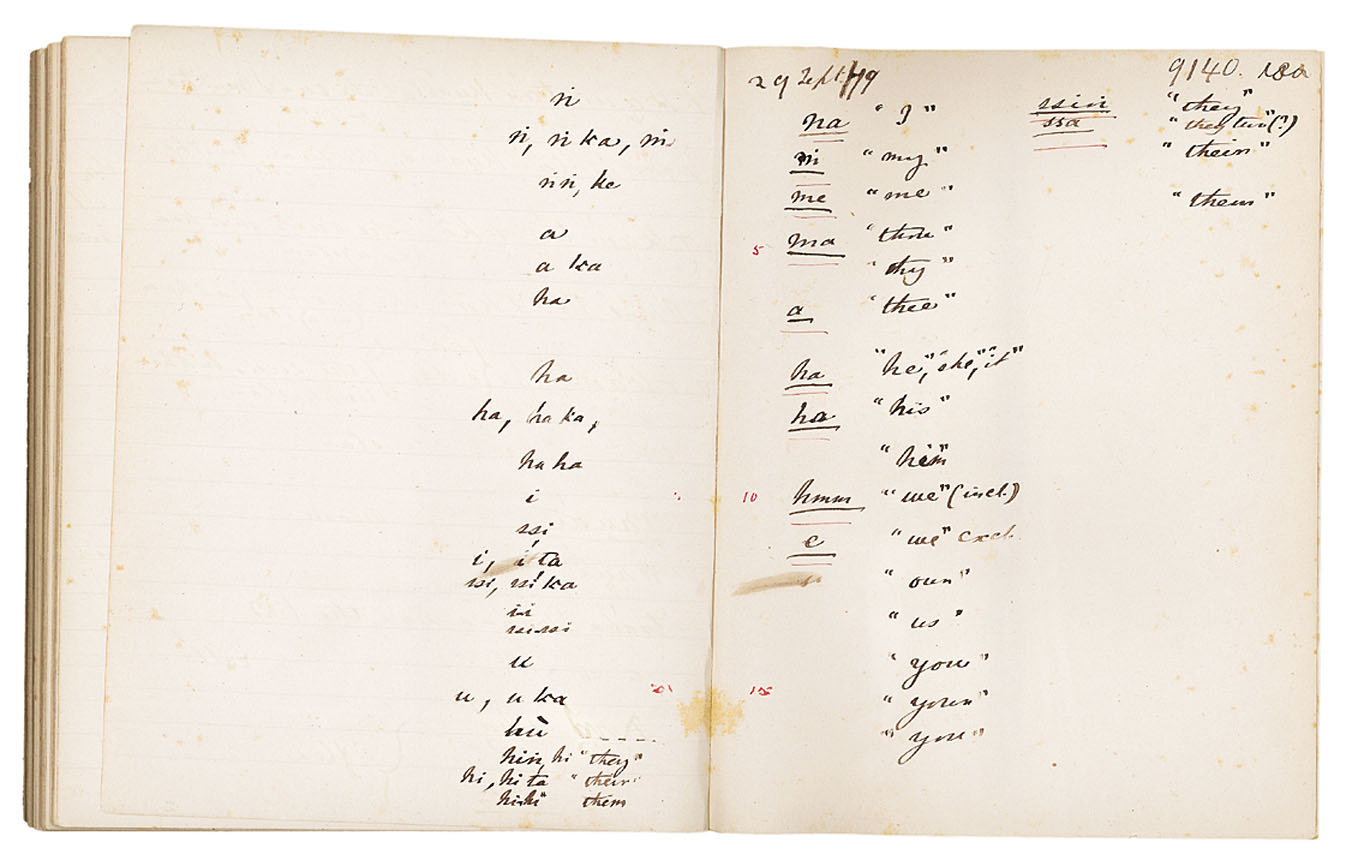 ṅ
ṅ, ṅ ka, ṅṅ
ṅṅ, ke
a
a ka
ha
ha
ha, ha ka,
ha ha
i
si
i, i ta
si, si ka
i-i
si-si
u
u, u ka
hu
hiṅ, hi "they"
hi, hi ta "their"
hi-hi them
29 Sept. /79
9140.
na "I"
"my"
me "me"
5 ma "thou"
"thy"
a "thee"
ha "he", "she", "it"
ha "his"
"him"
10 hmm "we" (incl.)
e "we" excl.
"our"
"us"
"you"
15 "your"
"you"
"they"
ssa "they two" (?)
"their"
"them"